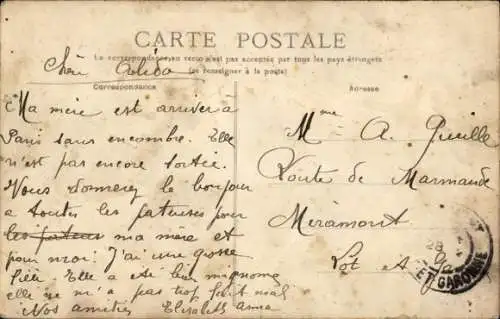 CARTE POSTALE
La correspondance au recto n'est pas acceptée par tous les pays étrangers
(se renseigner à la poste)
Correspondance
Adresse
Ma mère est arrivée à
Paris sans encombre. Elle
n'est pas encore sortie.
Vous donnerez le bonjour
a toutes les pour
ma mère et
pour moi. J'ai une grosse
fille. Elle a été bien mignonne
elle ne m'a pas trop fait mal
Nos amitiés Elisabeth Anna
Mme A.
Route de Marmande
Miramont
Lot et
28
ET GARONNE